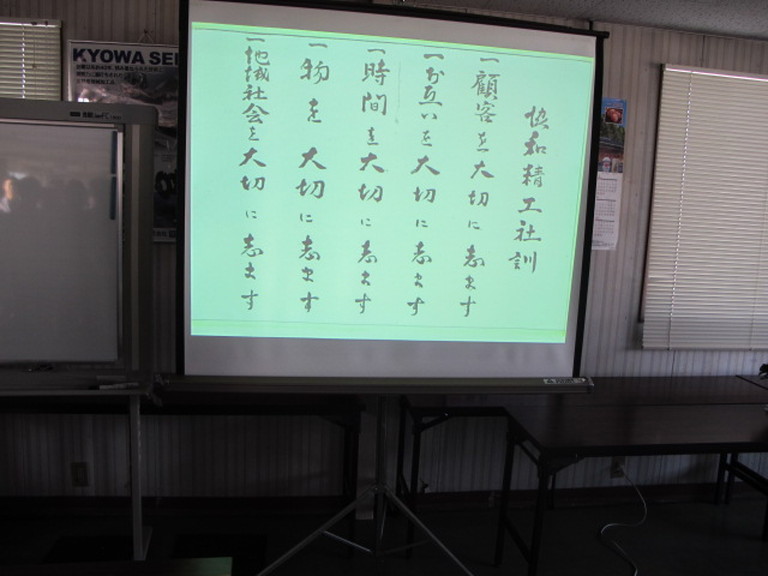 協和精工社訓
一顧客を大切に志ます
一お互いを大切に志ます
一時間を大切に志ます
一物を大切に志ます
一地域社会を大切に志ます
KYOWA SEI